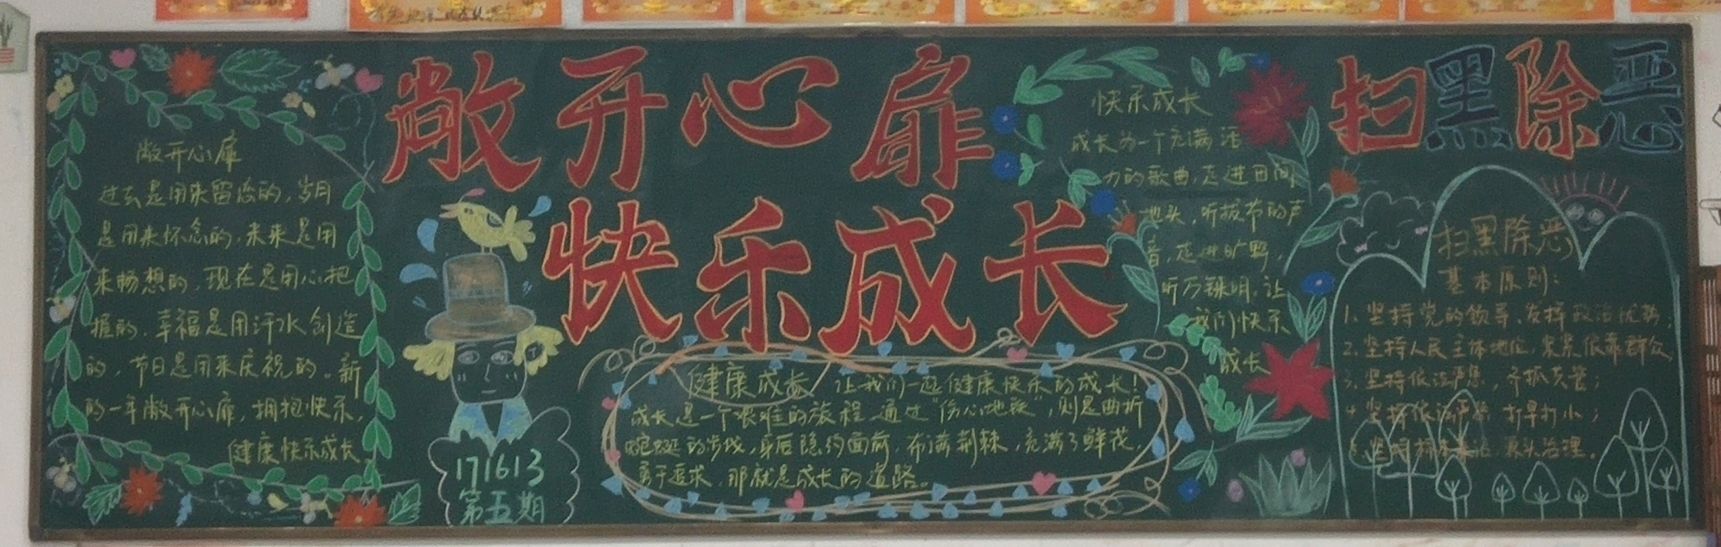 敞开心扉
快乐成长
扫黑除恶
敞开心扉
过去是用来留恋的，岁月
是用来怀念的，未来是用
来畅想的，现在是用心把
握的，幸福是用汗水创造
的，节日是用来庆祝的。新
的一年敞开心扉，拥抱快乐，
健康快乐成长
171613
第五期
健康成长 让我们一起健康快乐的成长！
成长是一个艰难的旅程 通过“伤心地段”，则是曲折
蜿蜒的步伐，身后隐约面前，布满荆棘，充满了鲜花，
勇于追求，那就是成长的道路。
快乐成长
成长为一个充满活
力的歌曲，走进田间
地头，听拔节的声
音，走进旷野，
听万籁
让
我们快乐
成长
扫黑除恶
基本原则：
1、坚持党的领导、发挥政治优势；
2、坚持人民主体地位，紧紧依靠群众
3、坚持 ，齐抓共管；
4、坚持依法严惩 打早打小；
5、坚持标本兼治 源头治理。